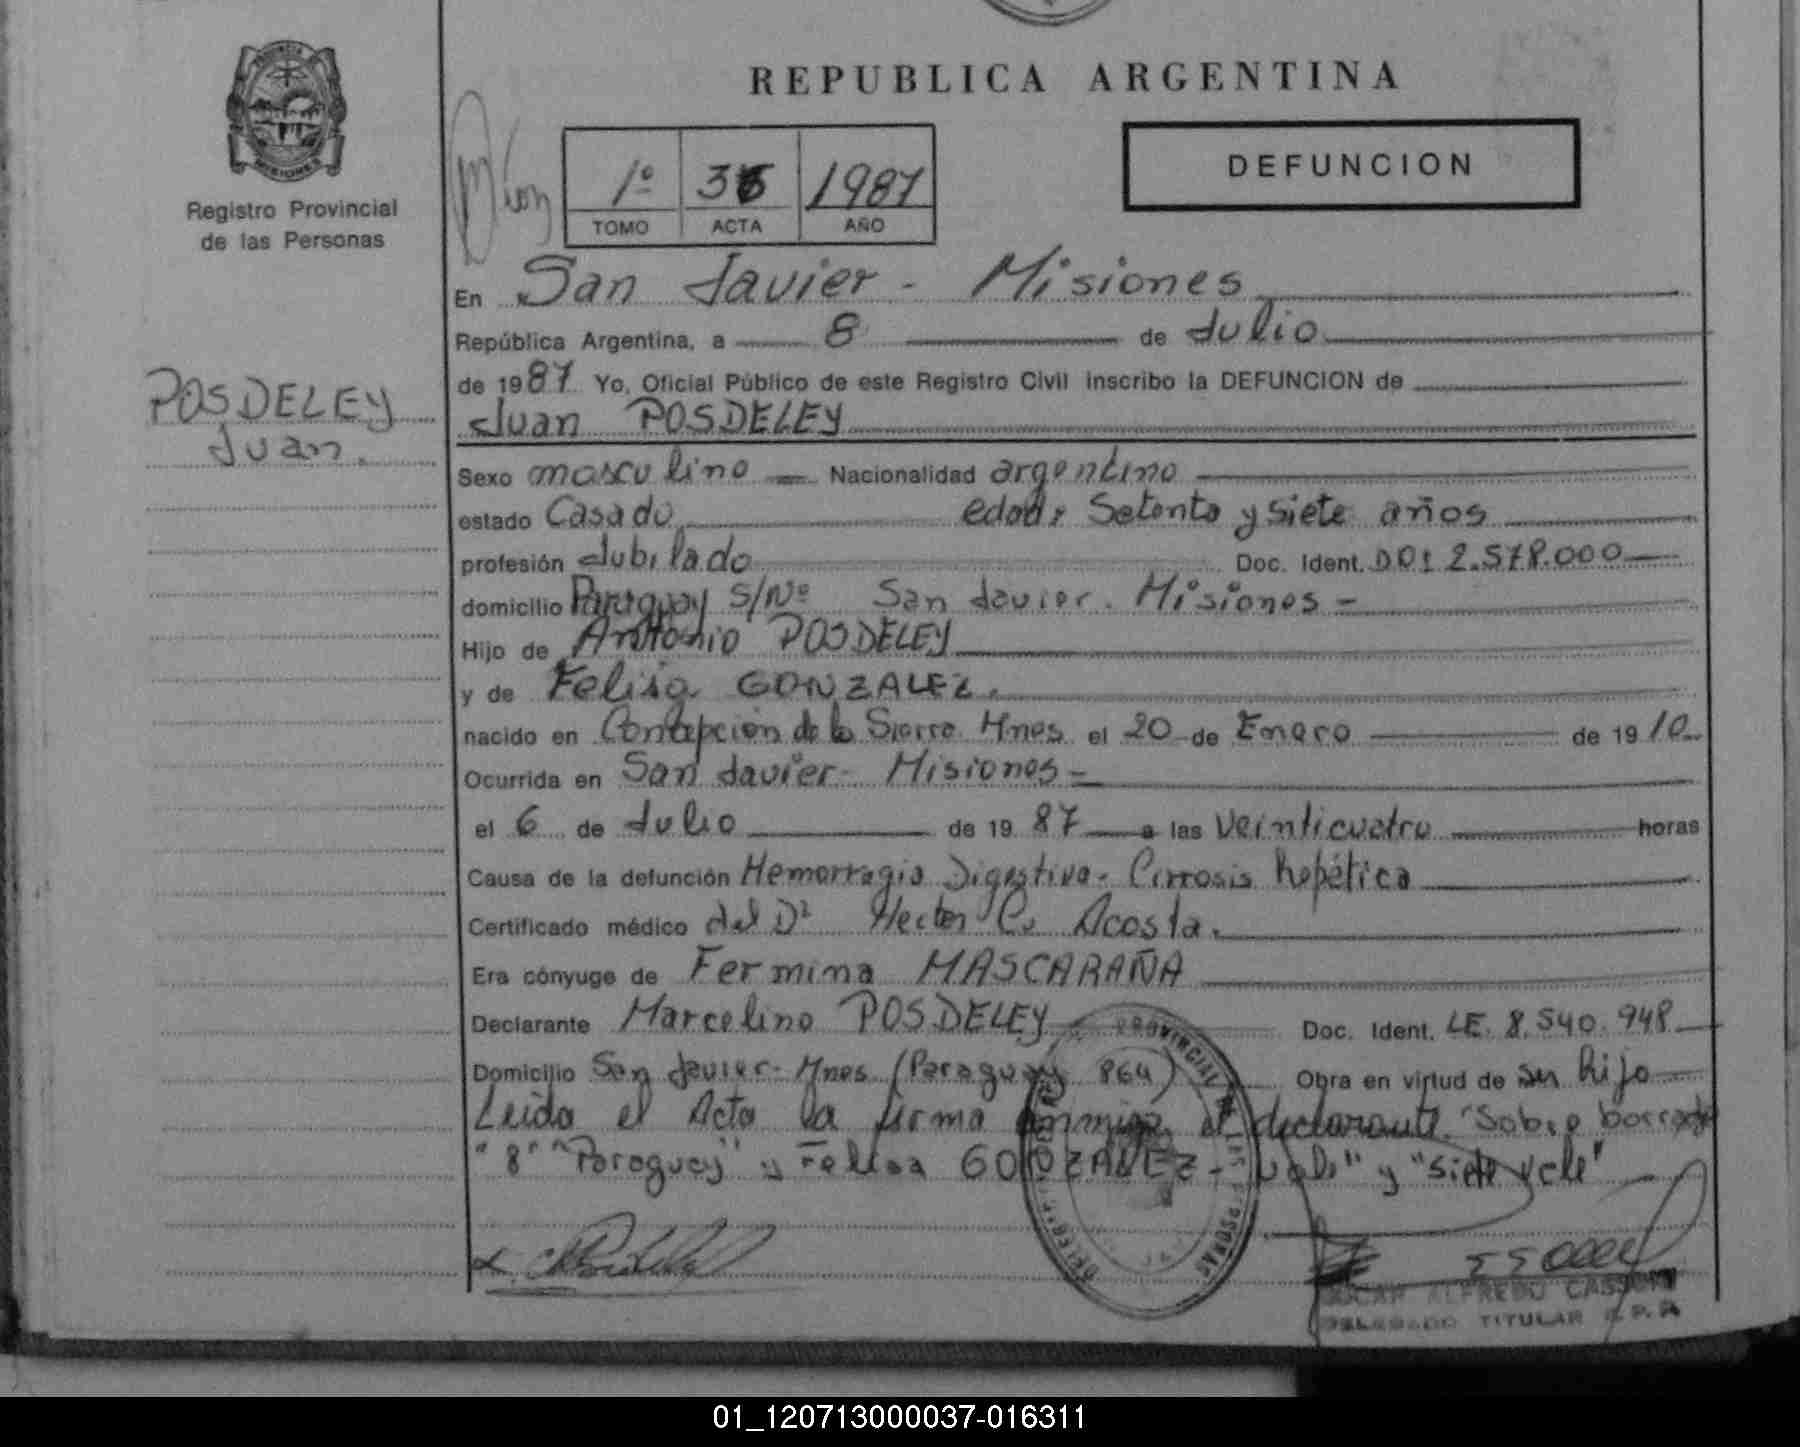 PROVINCIA
MISIONES
Registro Provincial
de las Personas
REPUBLICA ARGENTINA
1º 36 1987
TOMO ACTA AÑO
DEFUNCION
En San Javier - Misiones
República Argentina, a 8 de Julio
de 1987 Yo, Oficial Público de este Registro Civil inscribo la DEFUNCION de
Juan POSDELEY
POSDELEY
Juan.
Sexo masculino - Nacionalidad argentino
estado Casado edad: Setenta y siete años
profesión Jubilado Doc. Ident. DOI 2.578.000
domicilio Paraguay S/Nº San Javier. Misiones -
Hijo de Antonio POSDELEY
y de Felisa GONZALEZ.
nacido en Concepción de la Sierra Mnes el 20 de Enero de 1910
Ocurrida en San Javier - Misiones -
el 6 de Julio de 1987 a las Veinticuatro horas
Causa de la defunción Hemorragia Digestiva - Cirrosis hepática
Certificado médico del Dr Hector C. Acosta.
Era cónyuge de Fermina MASCARAÑA
Declarante Marcelino POSDELEY Doc. Ident. LE. 8.540.948
Domicilio San Javier - Mnes (Paraguay 864) Obra en virtud de su hijo
Leida el Acta la firma conmigo el declarante. Sobre borrado
"8" "Paraguay" y Felisa GONZALEZ - vale" y "siete vale"
PROVINCIAL DE LAS PERSONAS
OSCAR ALFREDO
DELEGADO TITULAR R.P.P.
01_120713000037-016311